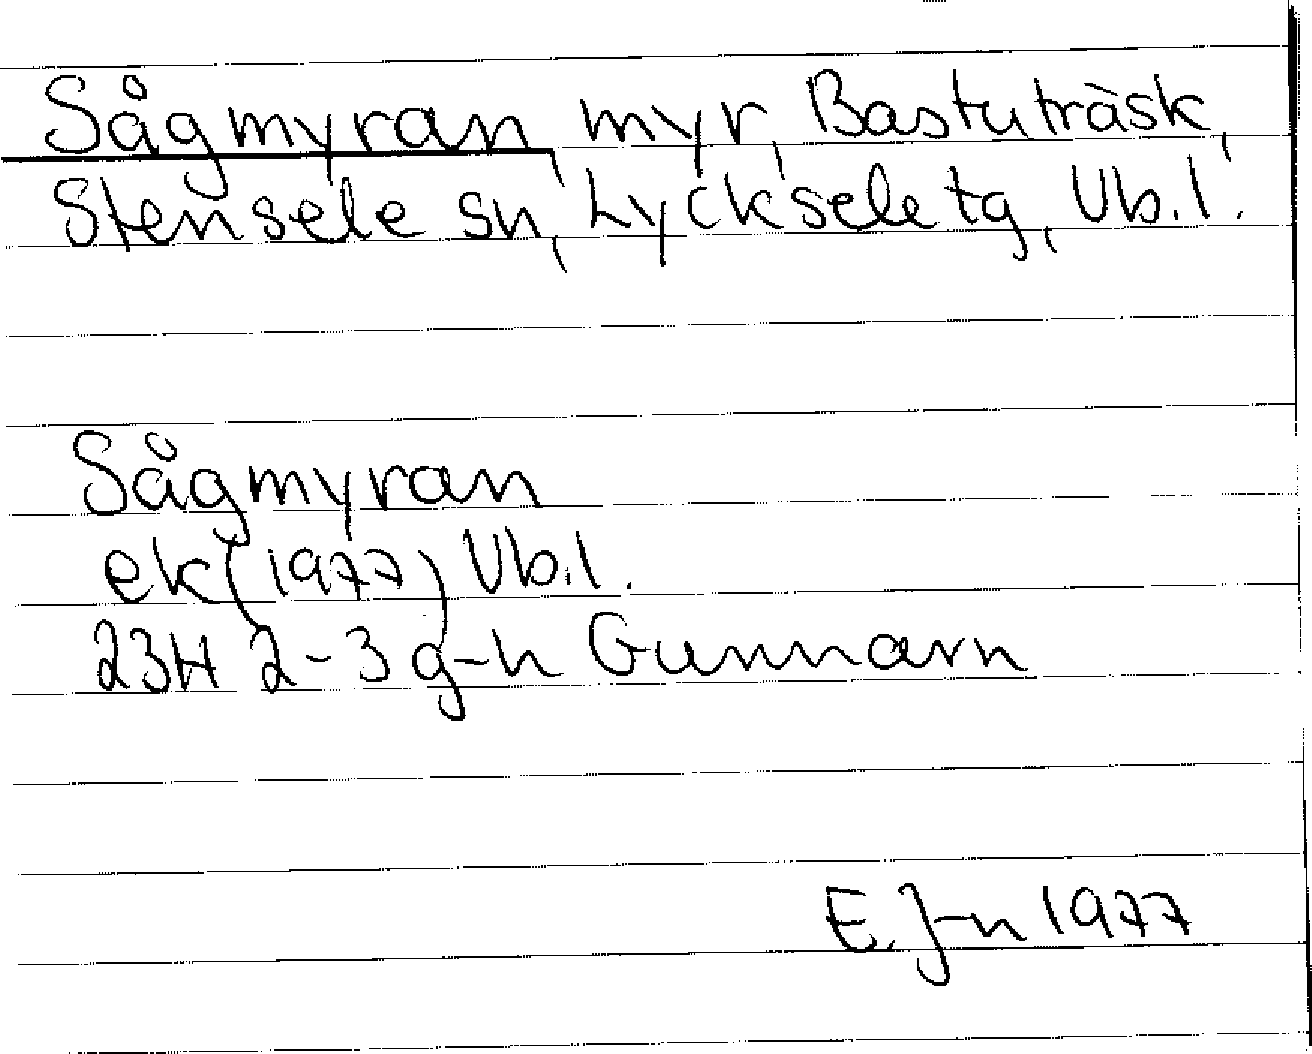 Sågmyran, myr, Bastuträsk,
Stensele sn, Lycksele tg, Vb.l.
Sågmyran
ek (1977) Vb.l.
23H 2-3 g-h Gunnarn
E. J-n 1977